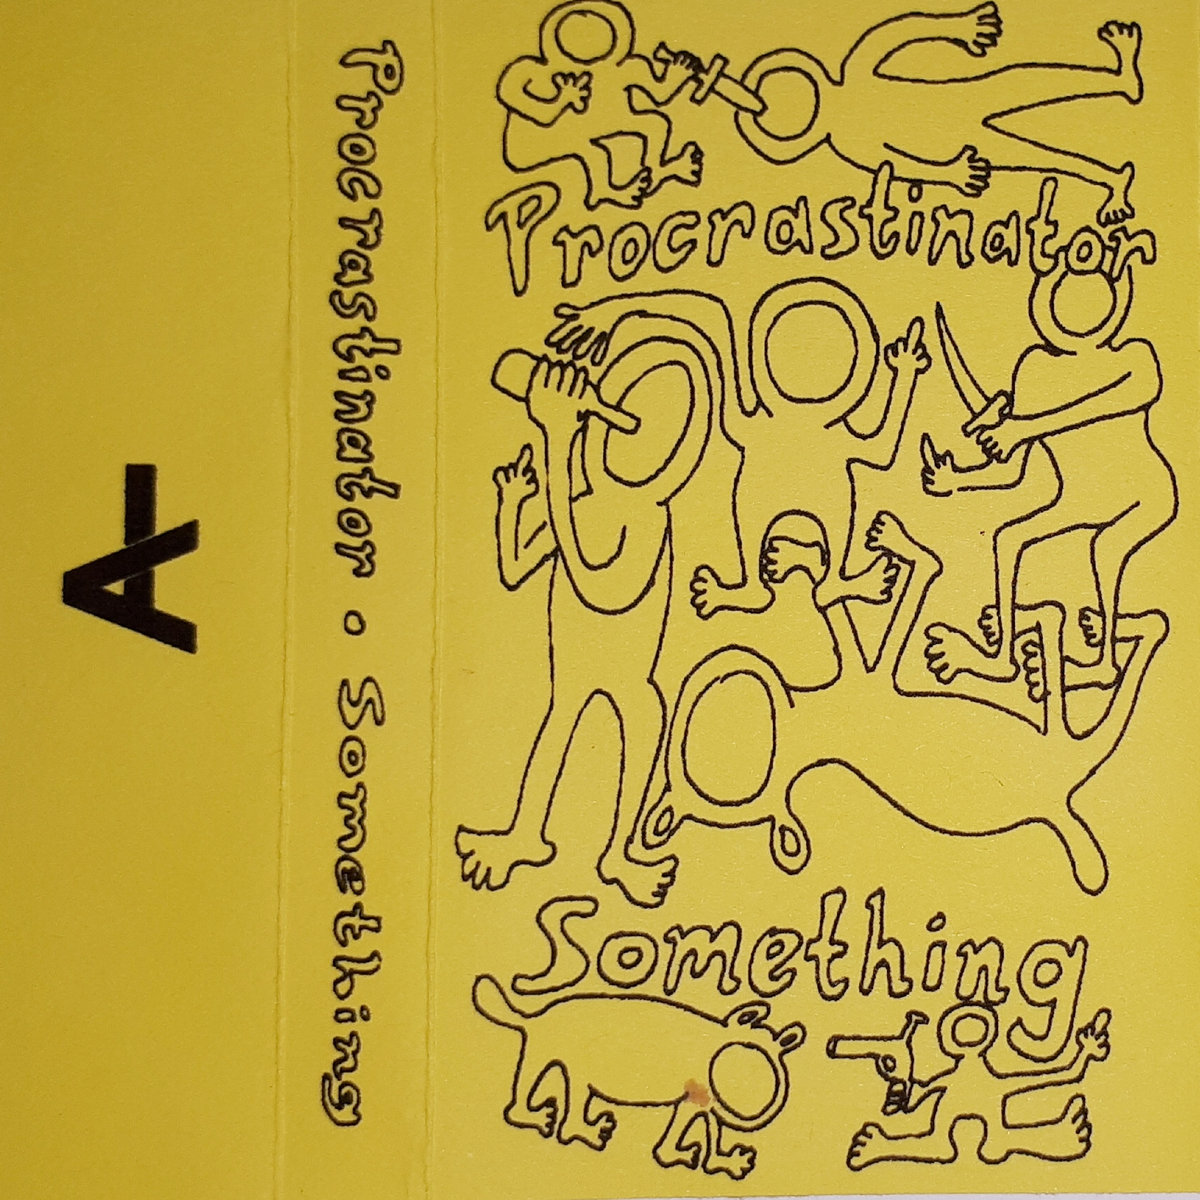 Procrastinator
Something
Procrastinator • Something
A